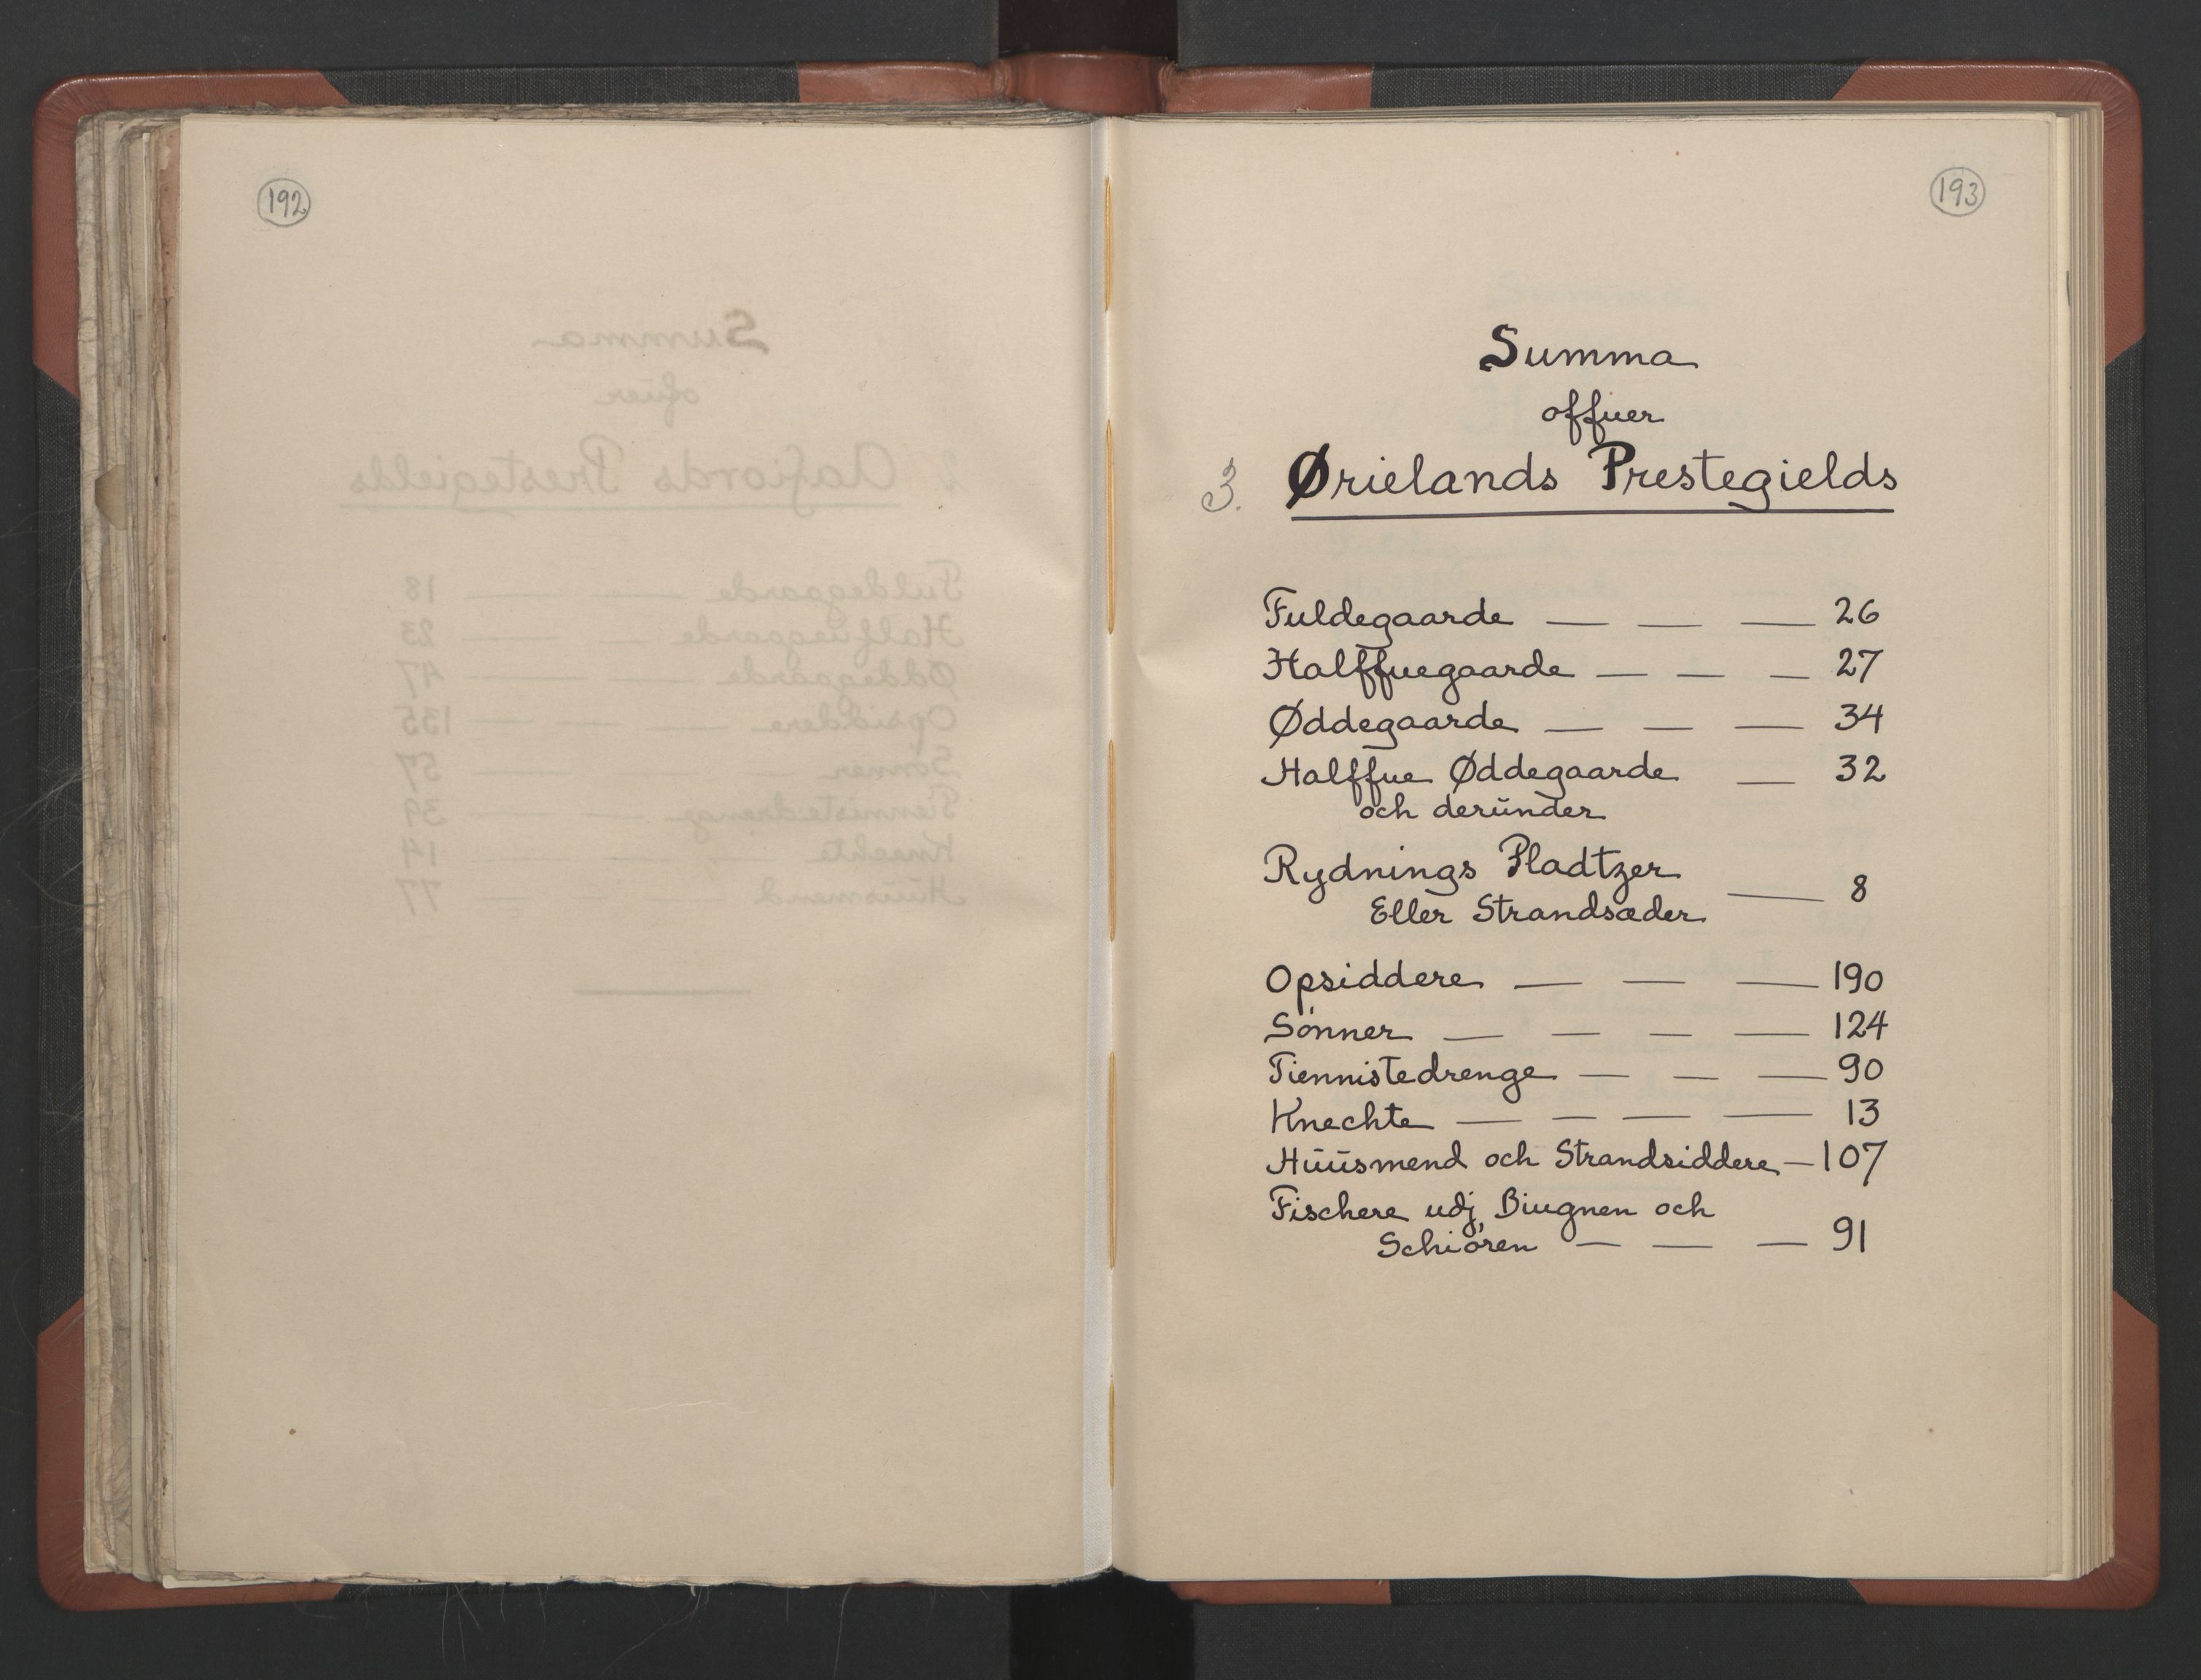 192
193
Summa
offuer
3. Ørielands Prestegields
Fuldegaarde — — — 26
Halffuegaarde — — — 27
Øddegaarde — — — 34
Halffue Øddegaarde — 32
och derŭnder
Rydnings Pladtzer
Eller Strandsæder — 8
Opsiddere — — — 190
Sønner — — — — 124
Tiennistedrenge — — — 90
Knechte — — — — 13
Hŭŭsmend och Strandsiddere — 107
Fischere udj Biugnen och
Schiøren — — — 91